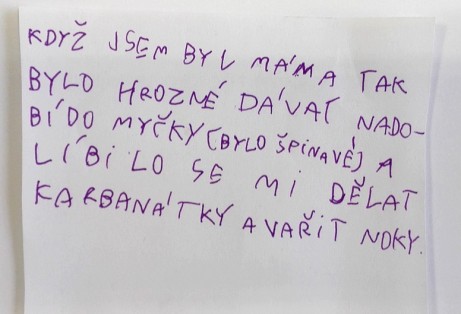 KDYŽ JSEM BYL MÁMA TAK
BYLO HROZNÉ DÁVAT NADO-
BÍ DO MYČKY (BYLO ŠPINAVÉ) A
LÍBILO SE MI DĚLAT
KARBANÁTKY A VAŘIT NOKY.